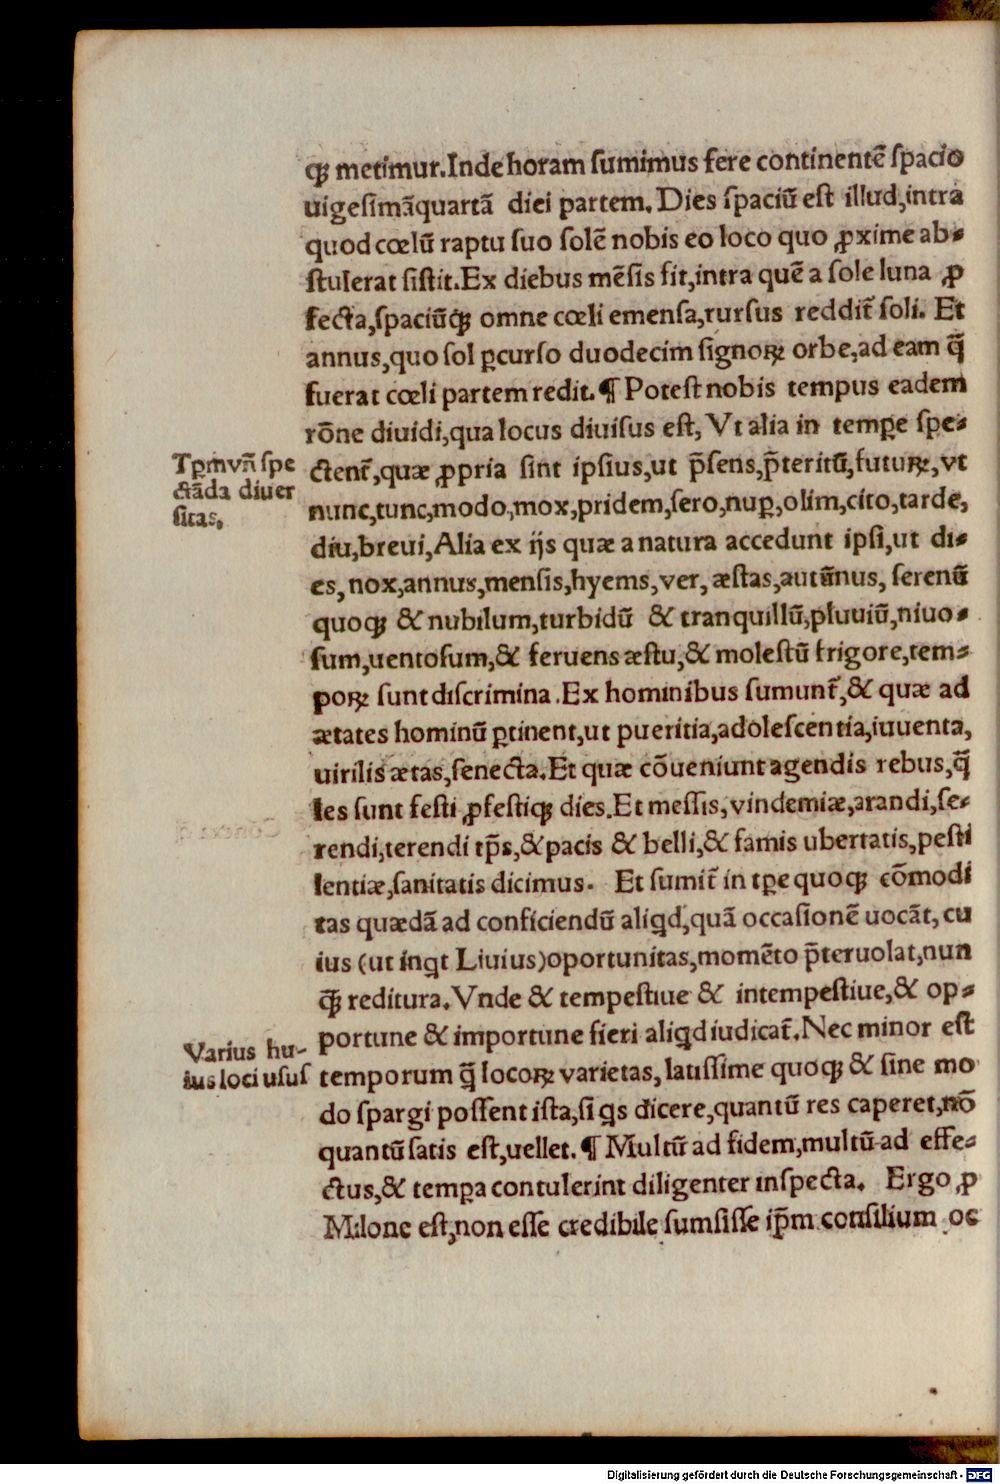 qꝫ metimur.Inde horam ſumimus fere continentē ſpacio
uigeſimāquartā diei partem. Dies ſpaciū eſt illud,intra
quod cœlū raptu ſuo ſolē nobis eo loco quo ꝓxime ab⸗
ſtulerat ſiſtit.Ex diebus mēſis fit,intra quē a ſole luna ꝓ
fecta,ſpaciūqꝫ omne cœli emenſa,rurſus reddit̃ ſoli. Et
annus,quo ſol ꝑcurſo duodecim ſignoꝝ orbe,ad eam q̄
fuerat cœli partem redit.¶ Poteſt nobis tempus eadem
rōne diuidi,qua locus diuiſus eſt, Vt alia in tempe ſpe⸗
Tꝑm vñ ſpe
ctāda diuer
ſitas,
ctent̃,quæ ꝓpria ſint ipſius,ut p̄ſens,p̄teritū,futuꝝ,vt
nunc,tunc,modo,mox,pridem,ſero,nuꝑ,olim,cito,tarde,
diu,breui,Alia ex ijs quæ a natura accedunt ipſi,ut di⸗
es,nox,annus,menſis,hyems,ver,æſtas,autūnus, ſerenū
quoqꝫ & nubilum,turbidū & tranquillū,pluuiū,niuo⸗
ſum,uentoſum,& feruens æſtu,& moleſtū frigore,tem⸗
poꝝ ſunt diſcrimina.Ex hominibus ſumunt̃,& quæ ad
ætates hominū ꝑtinent,ut pueritia,adoleſcentia,iuuenta,
uirilis ætas,ſenecta.Et quæ cōueniunt agendis rebus,q̄
les ſunt feſti ꝓfeſtiqꝫ dies.Et meſſis,vindemiæ,arandi,ſe⸗
rendi,terendi tp̄s,& pacis & belli,& famis ubertatis,peſti
lentiæ,ſanitatis dicimus. Et ſumit̃ in tꝑe quoqꝫ cōmodi
tas quædā ad conficiendū aliqd,quā occaſionē uocāt, cu
ius (ut inqt Liuius)oportunitas,momēto p̄teruolat,nun
q̄ꝫ reditura.Vnde & tempeſtiue & intempeſtiue,& op⸗
portune & importune fieri aliqd iudicat̃.Nec minor eſt
Varius hu-
ius loci uſus
temporum q̄ locoꝝ varietas, latiſſime quoqꝫ & ſine mo
do ſpargi poſſent iſta,ſi qs dicere,quantū res caperet,nō
quantū ſatis eſt,uellet.¶ Multū ad fidem,multū ad effe⸗
ctus,& tempa contulerint diligenter inſpecta. Ergo ꝓ
Milone eſt,non eſſe credibile ſumſiſſe ip̄m conſilium oc
Digitalisierung gefördert durch die Deutsche Forschungsgemeinschaft - DFG